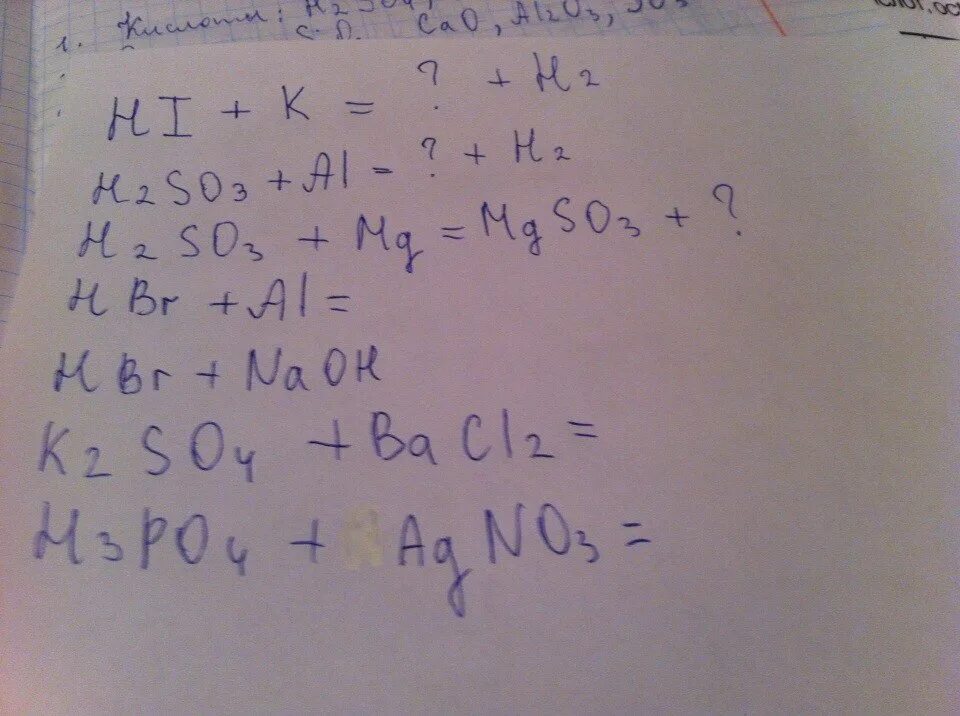 1. Кислоты: H2SO4,
CaO, Al2O3, SO3
HI + K = ? + H2
H2SO3 + Al = ? + H2
H2SO3 + Mg = MgSO3 + ?
HBr + Al =
HBr + NaOH
K2SO4 + BaCl2 =
H3PO4 + AgNO3 =